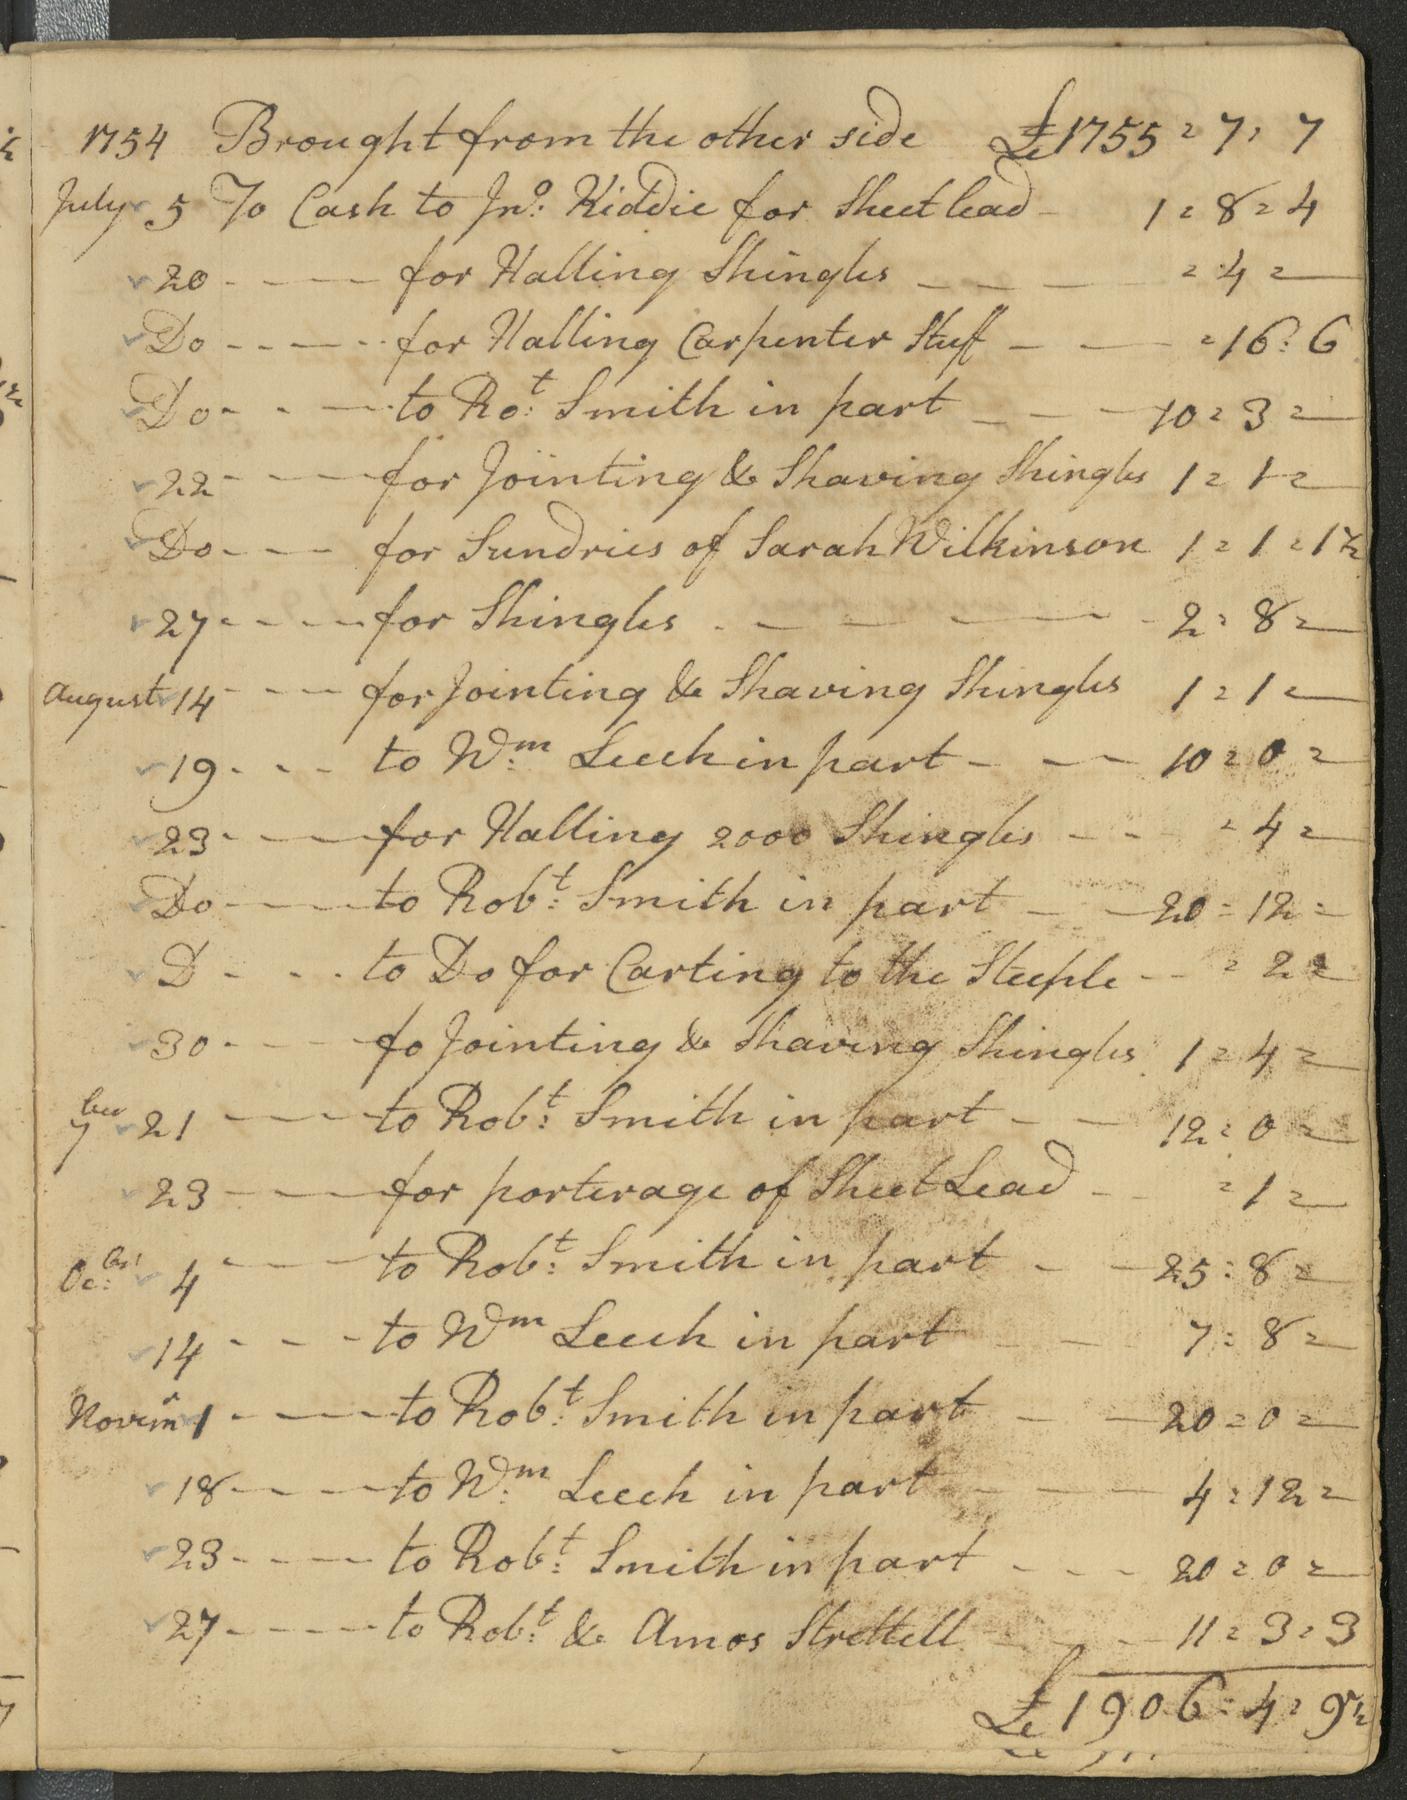 1754 Brought from the other side £1755 = 7 = 7
July 5 To Cash to Jno: Kiddie for Sheet lead - 1 = 8 = 4
20 - - - for Halling Shingles - - - = 4 =
Do - - - for Halling Carpenter Stuff - - = 16 = 6
Do - - - to Rot: Smith in part - - - 10 = 3 =
22 - - - for Jointing & Shaving Shingles 1 = 1 =
Do - - - for Sundries of Sarah Wilkinson 1 = 1 = 1½
27 - - - for Shingles - - - 2 = 8 =
August 14 - - - for Jointing & Shaving Shingles 1 = 1 =
19 - - - to Wm: Leech in part - - - 10 = 0 =
23 - - - for Halling 2000 Shingles - - - = 4 =
Do - - - to Robt: Smith in part - - 20 = 12 =
D - - - to Do for Carting to the Steeple - - = 2 =
30 - - - fo Jointing & Shaving Shingles 1 = 4 =
7ber 21 - - - to Robt: Smith in part - - 12 = 0 =
23 - - - for porterage of Sheet Lead - - = 1 =
Oc:ber 4 - - - to Robt: Smith in part - - 25 = 8 =
14 - - - to Wm Leech in part - - 7 = 8 =
Novemr 1 - - - to Robt: Smith in part - - 20 = 0 =
18 - - - to Wm: Leech in part - - - 4 = 12 =
23 - - - to Robt: Smith in part - - - 20 = 0 =
27 - - - to Robt: & Amos Strettell - - - 11 = 3 = 3
£1906 = 4 = 9½